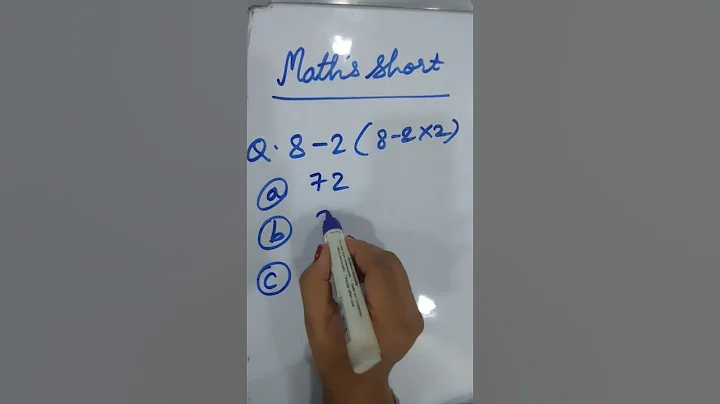 Math's Short
Q. 8-2(8-2×2)
a 72
b
c